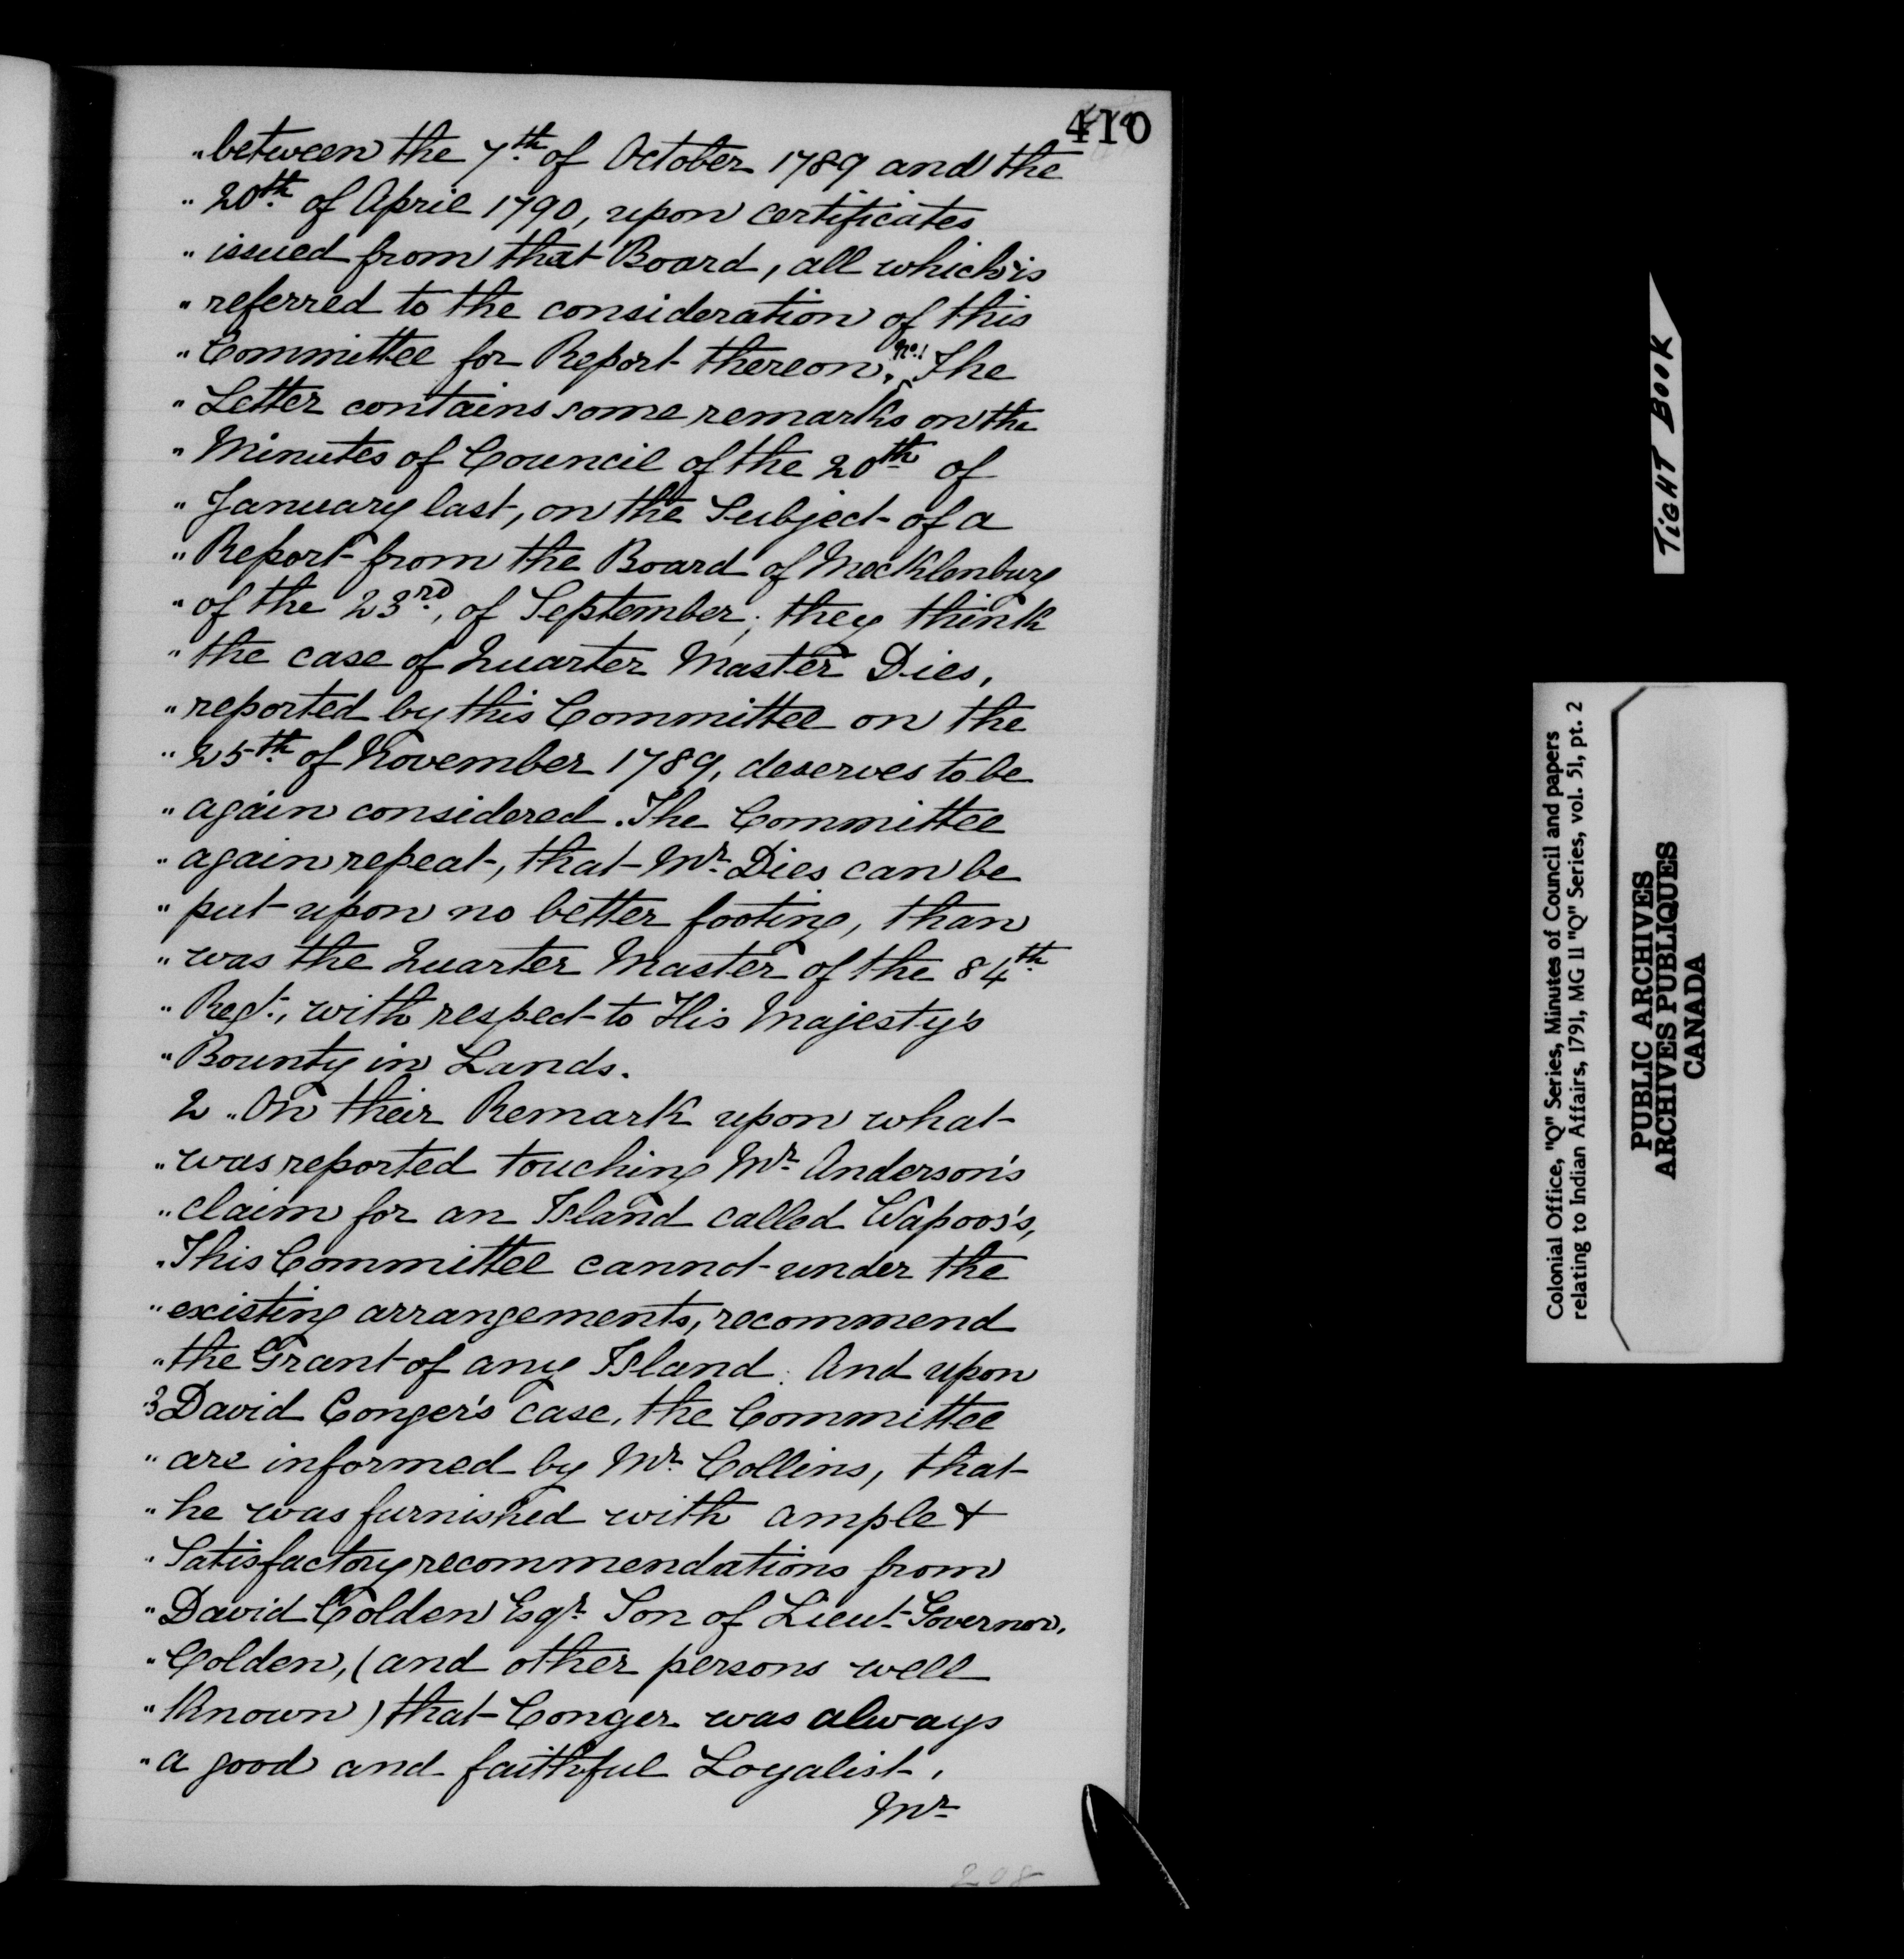 410
"between the 7th of October 1789 and the
" 20th of April 1790, upon certificates
" issued from that Board, all which is
" referred to the consideration of this
" Committee for Report thereon. No.1 The
" Letter contains some remarks on the
" Minutes of Council of the 20th of
" January last, on the Subject of a
" Report from the Board of Mecklenburg
" of the 23rd, of September; they think
" the case of Quarter Master Dies,
" reported by this Committee on the
" 25th of November 1789, deserves to be
" again considered. The Committee
" again repeat, that Mr. Dies can be
" put upon no better footing, than
" was the Quarter Master of the 84th
" Regt., with respect to His Majesty's
" Bounty in Lands.
2 " On their Remark upon what
" was reported touching Mr. Anderson's
" claim for an Island called Wapoos's,
" This Committee cannot under the
" existing arrangements, recommend
" the Grant of any Island. And upon
"3 David Conger's case, the Committee
" are informed by Mr. Collins, that
" he was furnished with ample &
" Satisfactory recommendations from
" David Colden Esqr. Son of Lieut-Governor,
" Colden, (and other persons well
" Known) that Conger was always
" a good and faithful Loyalist.
Mr.
208
TiGHT BOOK
Colonial Office, "Q" Series, Minutes of Council and papers
relating to Indian Affairs, 1791, MG 11 "Q" Series, vol. 51, pt. 2
PUBLIC ARCHIVES
ARCHIVES PUBLIQUES
CANADA